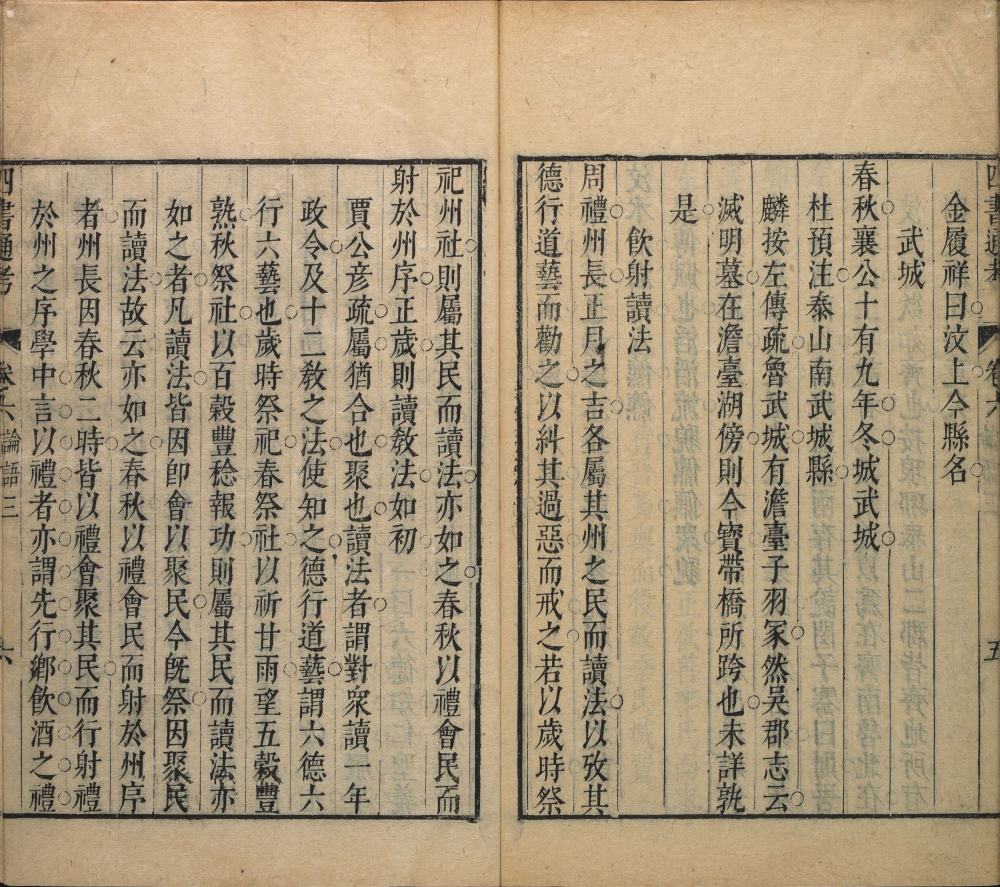 四書通考 卷六 五
金履祥曰汶上今縣名
武城
春秋襄公十有九年冬城武城
杜預注泰山南武城縣
麟按左傳疏魯武城有澹臺子羽冢然吳郡志云
滅明墓在澹臺湖傍則今寶帶橋所跨也未詳孰
是
飲射讀法
周禮州長正月之吉各屬其州之民而讀法以攷其
德行道藝而勸之以糾其過惡而戒之若以歲時祭
祀州社則屬其民而讀法亦如之春秋以禮會民而
射於州序正歲則讀敎法如初
賈公彦疏屬猶合也聚也讀法者謂對衆讀一年
政令及十二敎之法使知之德行道藝謂六德六
行六藝也歲時祭祀春祭社以祈甘雨望五穀豐
熟秋祭社以百穀豐稔報功則屬其民而讀法亦
如之者凡讀法皆因卽會以聚民今旣祭因聚民
而讀法故云亦如之春秋以禮會民而射於州序
者州長因春秋二時皆以禮會聚其民而行射禮
於州之序學中言以禮者亦謂先行鄉飲酒之禮
四書通考 卷六 論語三 六